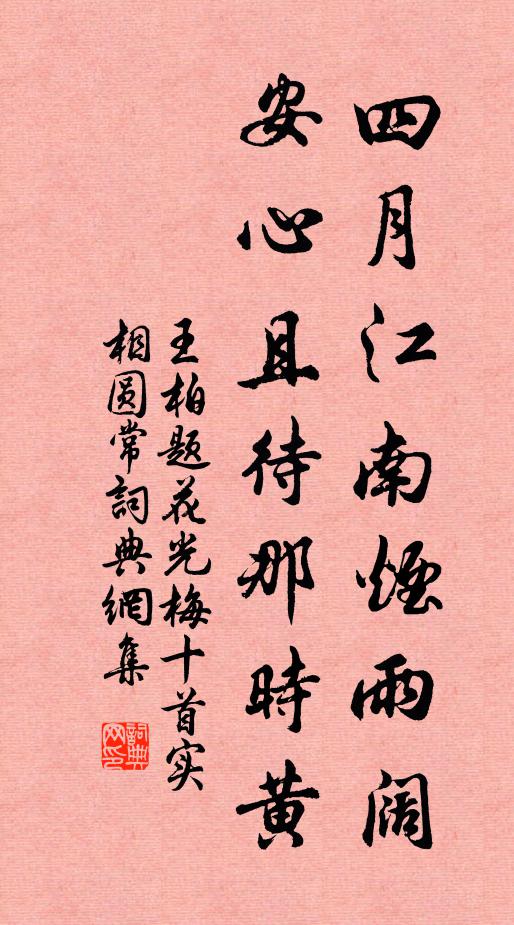 四月江南煙雨阔
安心且待那時黄
王柏题花光梅十首实
相圆常詞典網集
詞典
网印